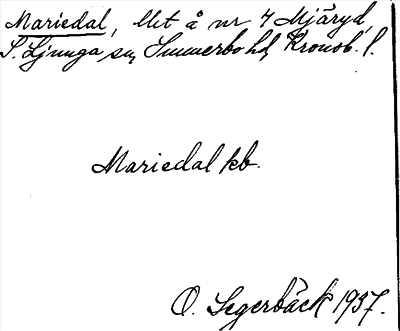 Mariedal, lht å nr 7 Mjäryd,
S. Ljunga sn, Sunnerbo hd, Kronob. l.
Mariedal kb.
O. Segerbäck 1937.